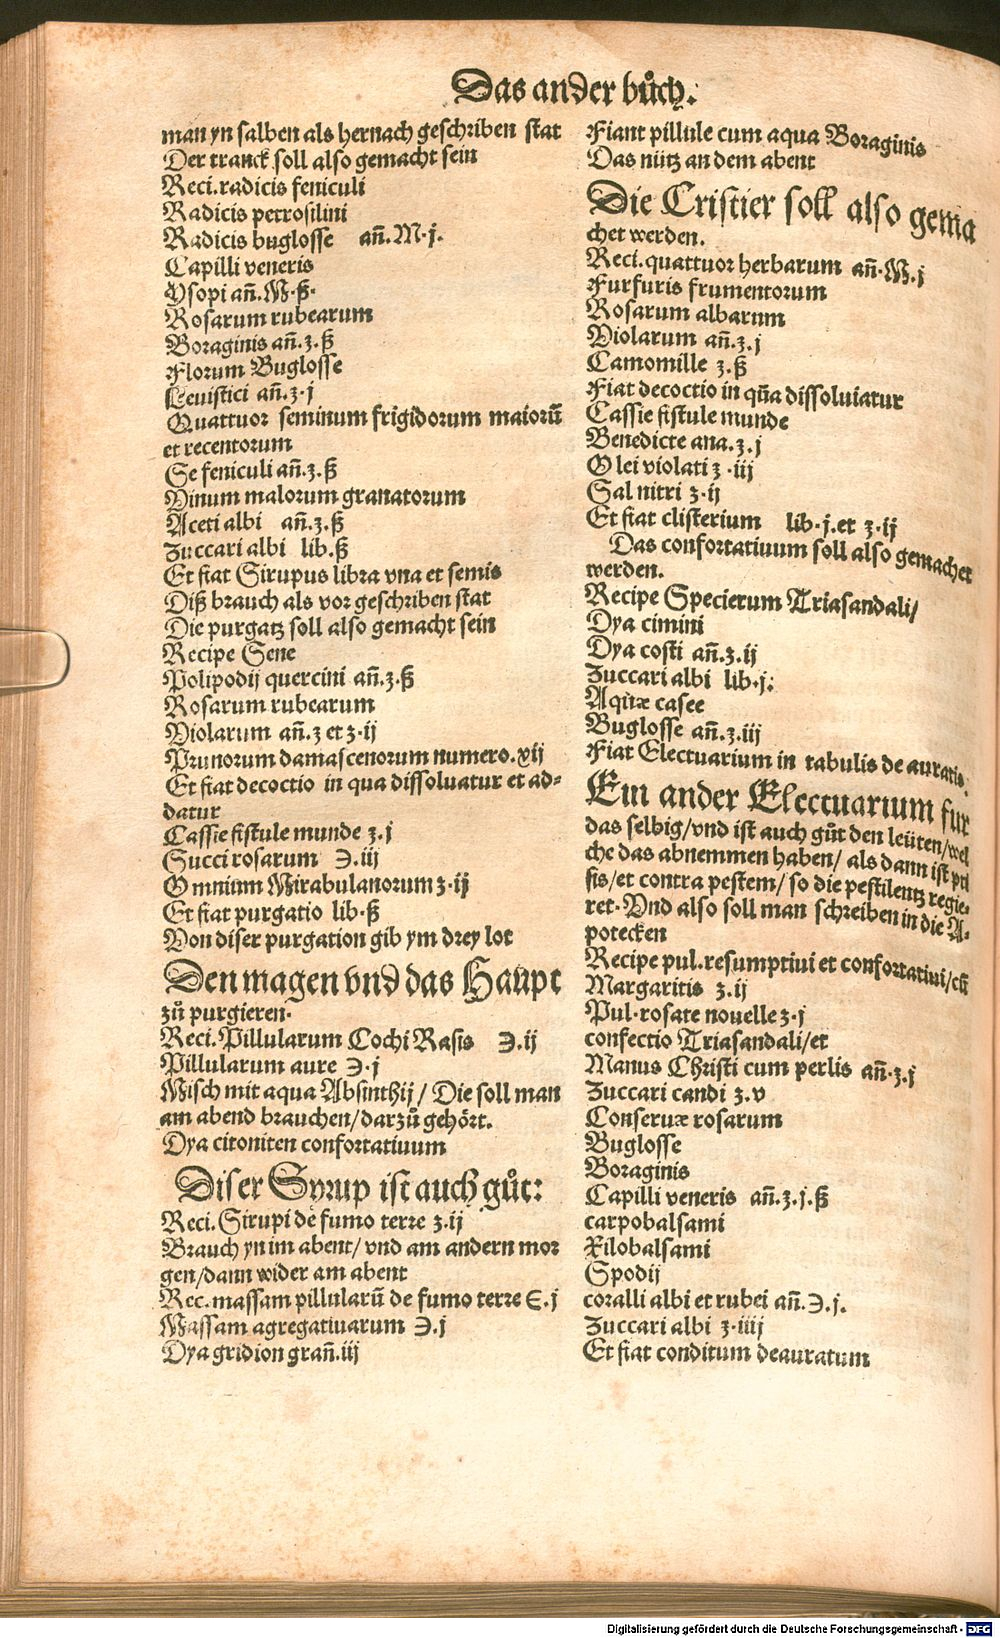 Das ander bůch.
man yn salben als hernach geschriben stat
Der tranck soll also gemacht sein
Reci. radicis feniculi
Radicis petrosilini
Radicis buglosse añ. M. j.
Capilli veneris
Ysopi añ. M. ß.
Rosarum rubearum
Boraginis añ. ʒ. ß
Florum Buglosse
Leuistici añ. ʒ. j
Quattuor seminum frigidorum maiorū
et recentorum
Se feniculi añ. ʒ. ß
Vinum malorum granatorum
Aceti albi añ. ʒ. ß
Zuccari albi lib. ß
Et fiat Sirupus libra vna et semis
Diß brauch als vor geschriben stat
Die purgatz soll also gemacht sein
Recipe Sene
Polipodij quercini añ. ʒ. ß
Rosarum rubearum
Violarum añ. ʒ et ʒ. ij
Prunorum damascenorum numero. xij
Et fiat decoctio in qua dissoluatur et ad⸗
datur
Cassie fistule munde ʒ. j
Succi rosarum ℈. iij
Omnium Mirabulanorum ʒ. ij
Et fiat purgatio lib. ß
Von diser purgation gib ym drey lot
Den magen vnd das Haupt
zů purgieren.
Reci. Pillularum Cochi Rasis ℈. ij
Pillularum aure ℈. j
Misch mit aqua Absinthij / Die soll man
am abend brauchen / darzů gehört.
Dya citoniten confortatiuum
Diser Syrup ist auch gůt:
Reci. Sirupi de fumo terre ʒ. ij
Brauch yn im abent / vnd am andern mor
gen / dann wider am abent
Rec. massam pillularū de fumo terre Є. j
Massam agregatiuarum ℈. j
Dyagridion grañ. iij
Fiant pillule cum aqua Boraginis
Das nütz an dem abent
Die Cristier soll also gema
chet werden.
Reci. quattuor herbarum añ. M. j
Furfuris frumentorum
Rosarum albarum
Violarum añ. ʒ. j
Camomille ʒ. ß
Fiat decoctio in qūa dissoluiatur
Cassie fistule munde
Benedicte ana. ʒ. j
Olei violati ʒ. iij
Sal nitri ʒ. ij
Et fiat clisterium lib. j. et ʒ. ij
Das confortatiuum soll also gemachet
werden.
Recipe Specierum Triasandali /
Dya cimini
Dya costi añ. ʒ. ij
Zuccari albi lib. j.
Aquæ casee
Buglosse añ. ʒ. iij
Fiat Electuarium in tabulis de auratis.
Ein ander Electuarium für
das selbig / vnd ist auch gůt den leüten / wel
che das abnemmen haben / als dann ist pti
sis / et contra pestem / so die pestilentz regie⸗
ret. Vnd also soll man schreiben in die A⸗
potecken
Recipe pul. resumptiui et confortatiui / cū
Margaritis ʒ. ij
Pul. rosate nouelle ʒ. j
confectio Triasandali / et
Manus Christi cum perlis añ. ʒ. j
Zuccari candi ʒ. v
Conseruæ rosarum
Buglosse
Boraginis
Capilli veneris añ. ʒ. j. ß
carpobalsami
Xilobalsami
Spodij
coralli albi et rubei añ. ℈. j.
Zuccari albi ʒ. iiij
Et fiat conditum deauratum
Digitalisierung gefördert durch die Deutsche Forschungsgemeinschaft - DFG